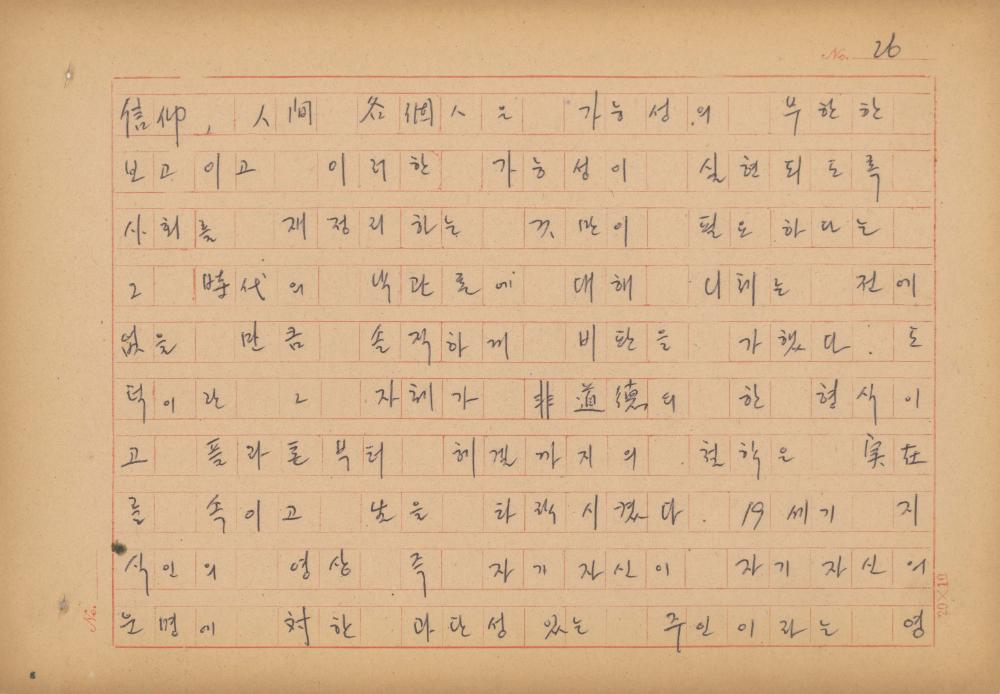 No. 26
信仰, 人間 各個人은 가능성의 부한한
보고이고 이러한 가능성이 실현되도록
사회를 재정리하는 것만이 필요하다는
그 時代의 낙관론에 대해 니체는 전에
없을 만큼 솔직하게 비판을 가했다. 도
덕이란 그 자체가 非道德의 한 형식이
고 플라톤부터 헤겔까지의 철학은 実在
를 속이고 낮을 타락시켰다. 19세기 지
식인의 영상 즉 자기 자신이 자기 자신의
문명에 対한 과단성 있는 주인이라는 영
No.
20×10